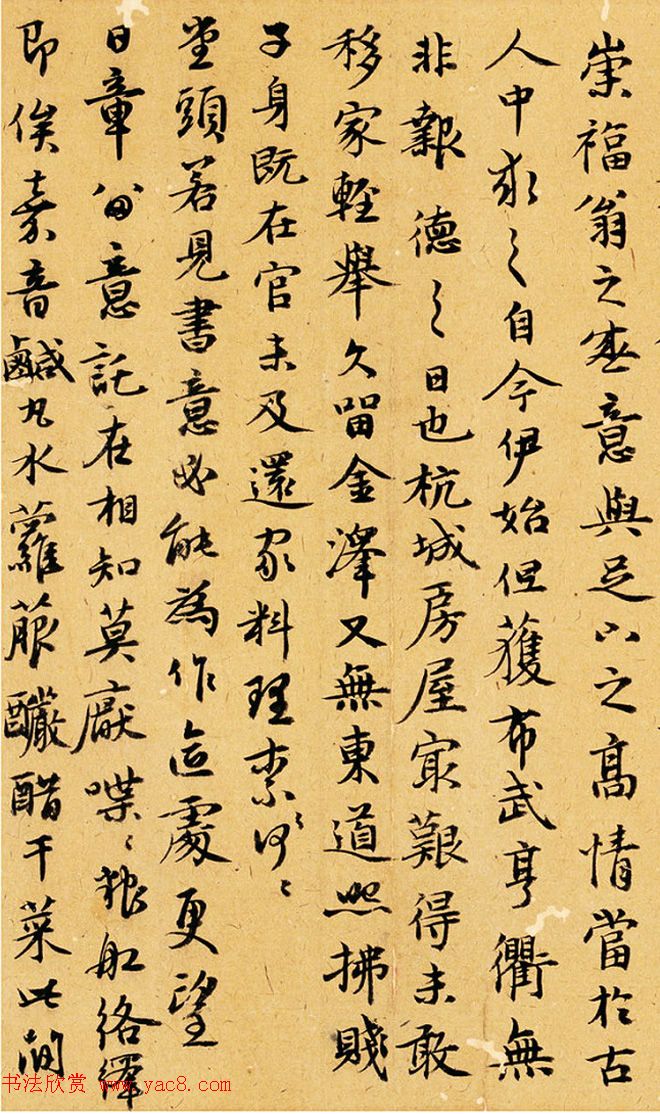 崇福翁之盛意與足下之高情當於古
人中求之自今伊始但獲布武亨衢無
非戴德之日也杭城房屋最艱得未敢
移家輕舉久留金澤又無東道照拂賤
子身既在官未及還家料理柰〻何〻
堂頭若見書意必能為作區處更望
日章意託在相知莫厭喋〻糧船絡繹
即俟嘉音鹹水蘿菔釅醋干菜此間
书法欣赏 www.yac8.com